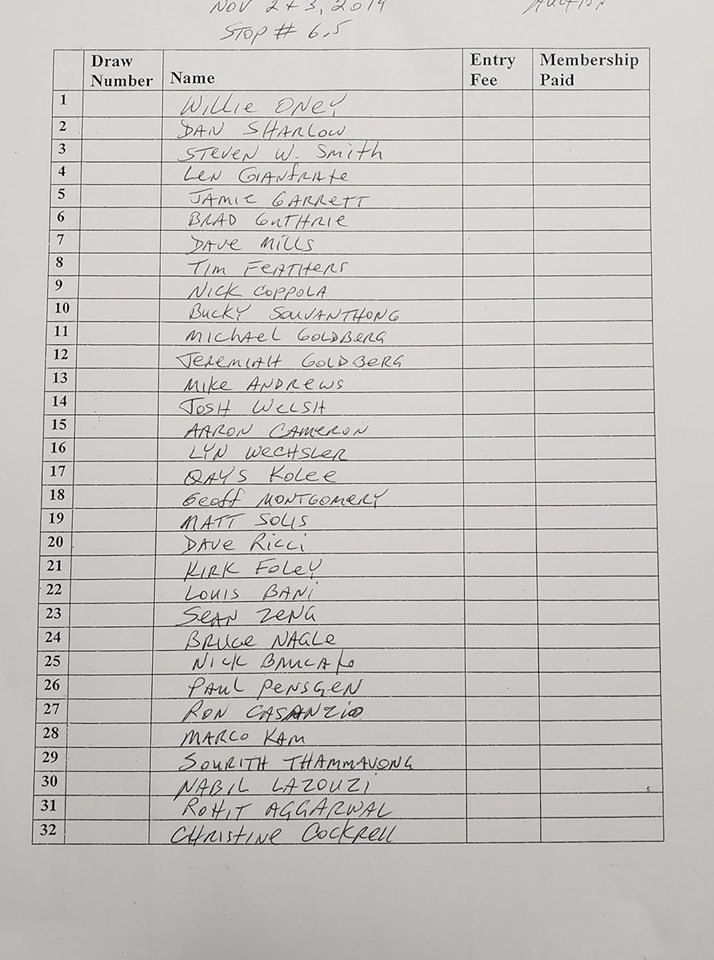 Nov 2 & 3, 2019 AUCTION
STOP # 6.5
Draw Number Name Entry Fee Membership Paid
1 Willie Oney
2 DAN SHARLOW
3 STEVEN W. Smith
4 LEN GIANFRATE
5 JAMIE GARRETT
6 BRAD GUTHRIE
7 DAVE MILLS
8 TIM FEATHERS
9 NICK COPPOLA
10 BUCKY SOUVANTHONG
11 MICHAEL GOLDBERG
12 JEREMIAH GOLDBERG
13 MIKE ANDREWS
14 JOSH WELSH
15 AARON CAMERON
16 LYN WECHSLER
17 QAYS KOLEE
18 GEOFF MONTGOMERY
19 MATT SOLIS
20 DAVE RICCI
21 KIRK FOLEY
22 LOUIS BANI
23 SEAN ZENG
24 BRUCE NAGLE
25 NICK BRUCATO
26 PAUL PENSGEN
27 RON CASANZIO
28 MARCO KAM
29 SOURITH THAMMAVONG
30 NABIL LAZOUZI
31 ROHIT AGGARWAL
32 CHRISTINE COCKRELL